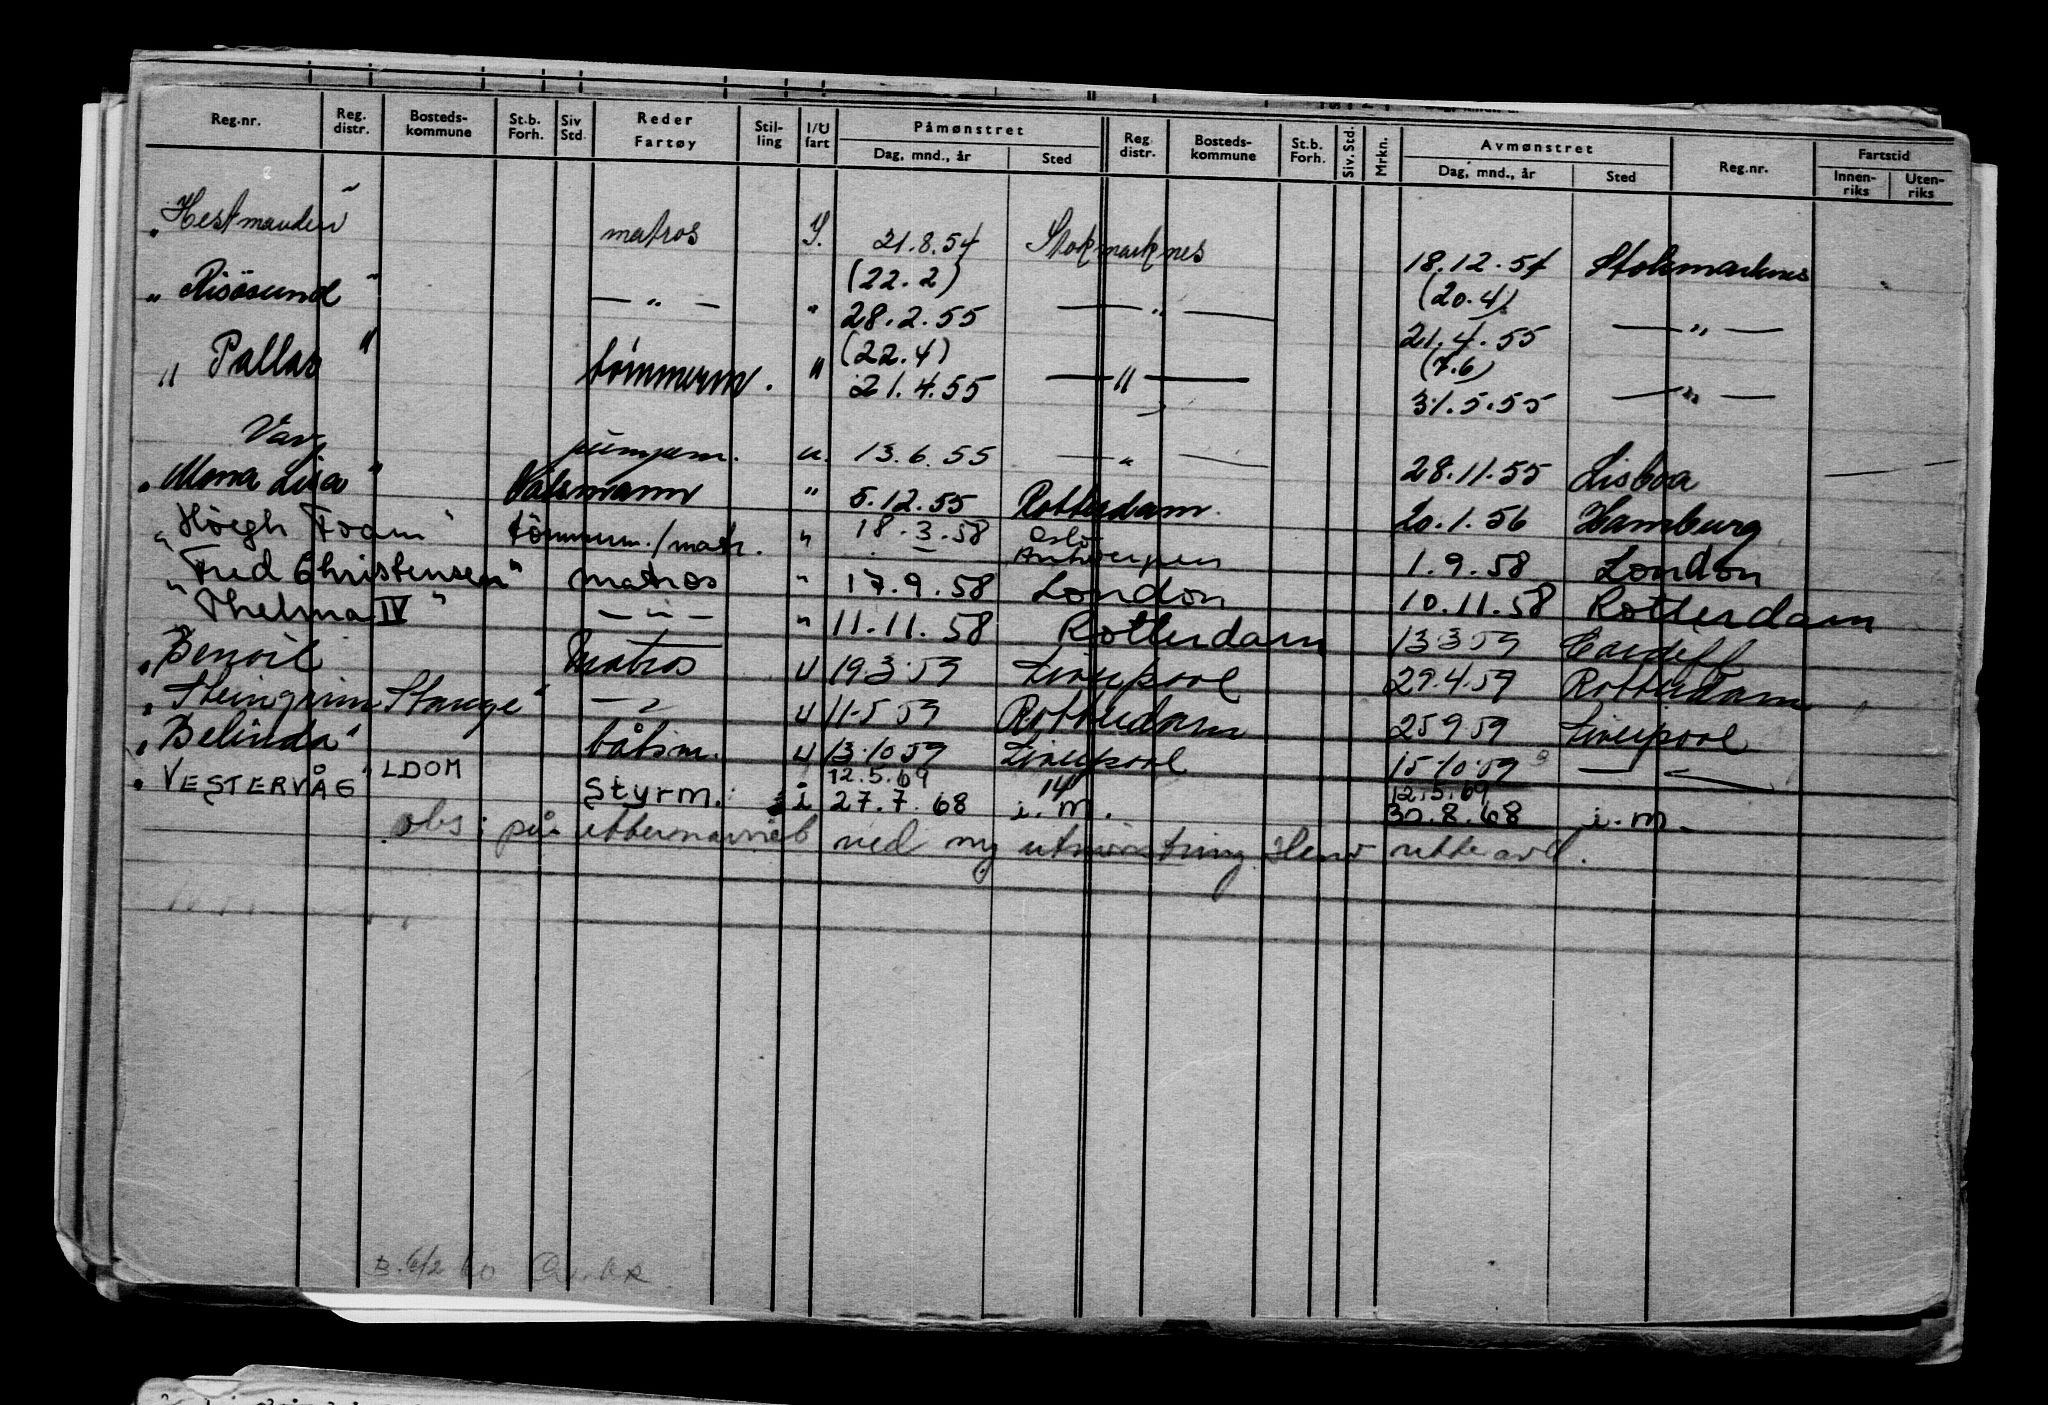 Reg.nr. Reg. distr. Bosteds-kommune St.b. Forh. Siv Std. Reder Fartøy Stil-ling I/U fart Påmønstret Dag, mnd., år Sted Reg distr. Bosteds-kommune St.b. Forh. Siv. Std. Mrkn. Avmønstret Dag, mnd., år Sted Reg.nr. Fartstid Innen-riks Uten-riks
"Hestmanden" matros I. 21.8.54 Stokmarknes 18.12.54 Stokmarknes
(22.2) (20.4)
"Risøsund" — " — " 28.2.55 — " — 21.4.55 — " —
(22.4) (7.6)
"Pallas" tømmerm. " 21.4.55 — " — 31.5.55 — " —
Varg pumpem. u. 13.6.55 — " — 28.11.55 Lisboa
"Mona Lisa" Båtsmann " 5.12.55 Rotterdam. 20.1.56 Hamburg
"Høegh Foam" tömmerm./matr. " 18.3.58 Oslo Antwerpen 1.9.58 London
"Fred Christensen" matros " 17.9.58 London 10.11.58 Rotterdam
"Thelma IV" — " — " 11.11.58 Rotterdam 13 3 59 Cardiff
"Benoil Matros U 19 3.59 Liverpool 29.4.59 Rotterdam
"Steingrim Stange" — " — U 11.5 59 Rotterdam 25 9 59 Liverpool
"Belinda" båtsm. U 13.10 59 Liverpool 15.10.59 — " —
12.5.69 14 12.5.69
"VESTERVÅG" LDOM Styrm. i 27.7.68 i.m. 30.8.68 i.m.
obs: på etternavnet ved ny utmönstring
B. 6/2 60